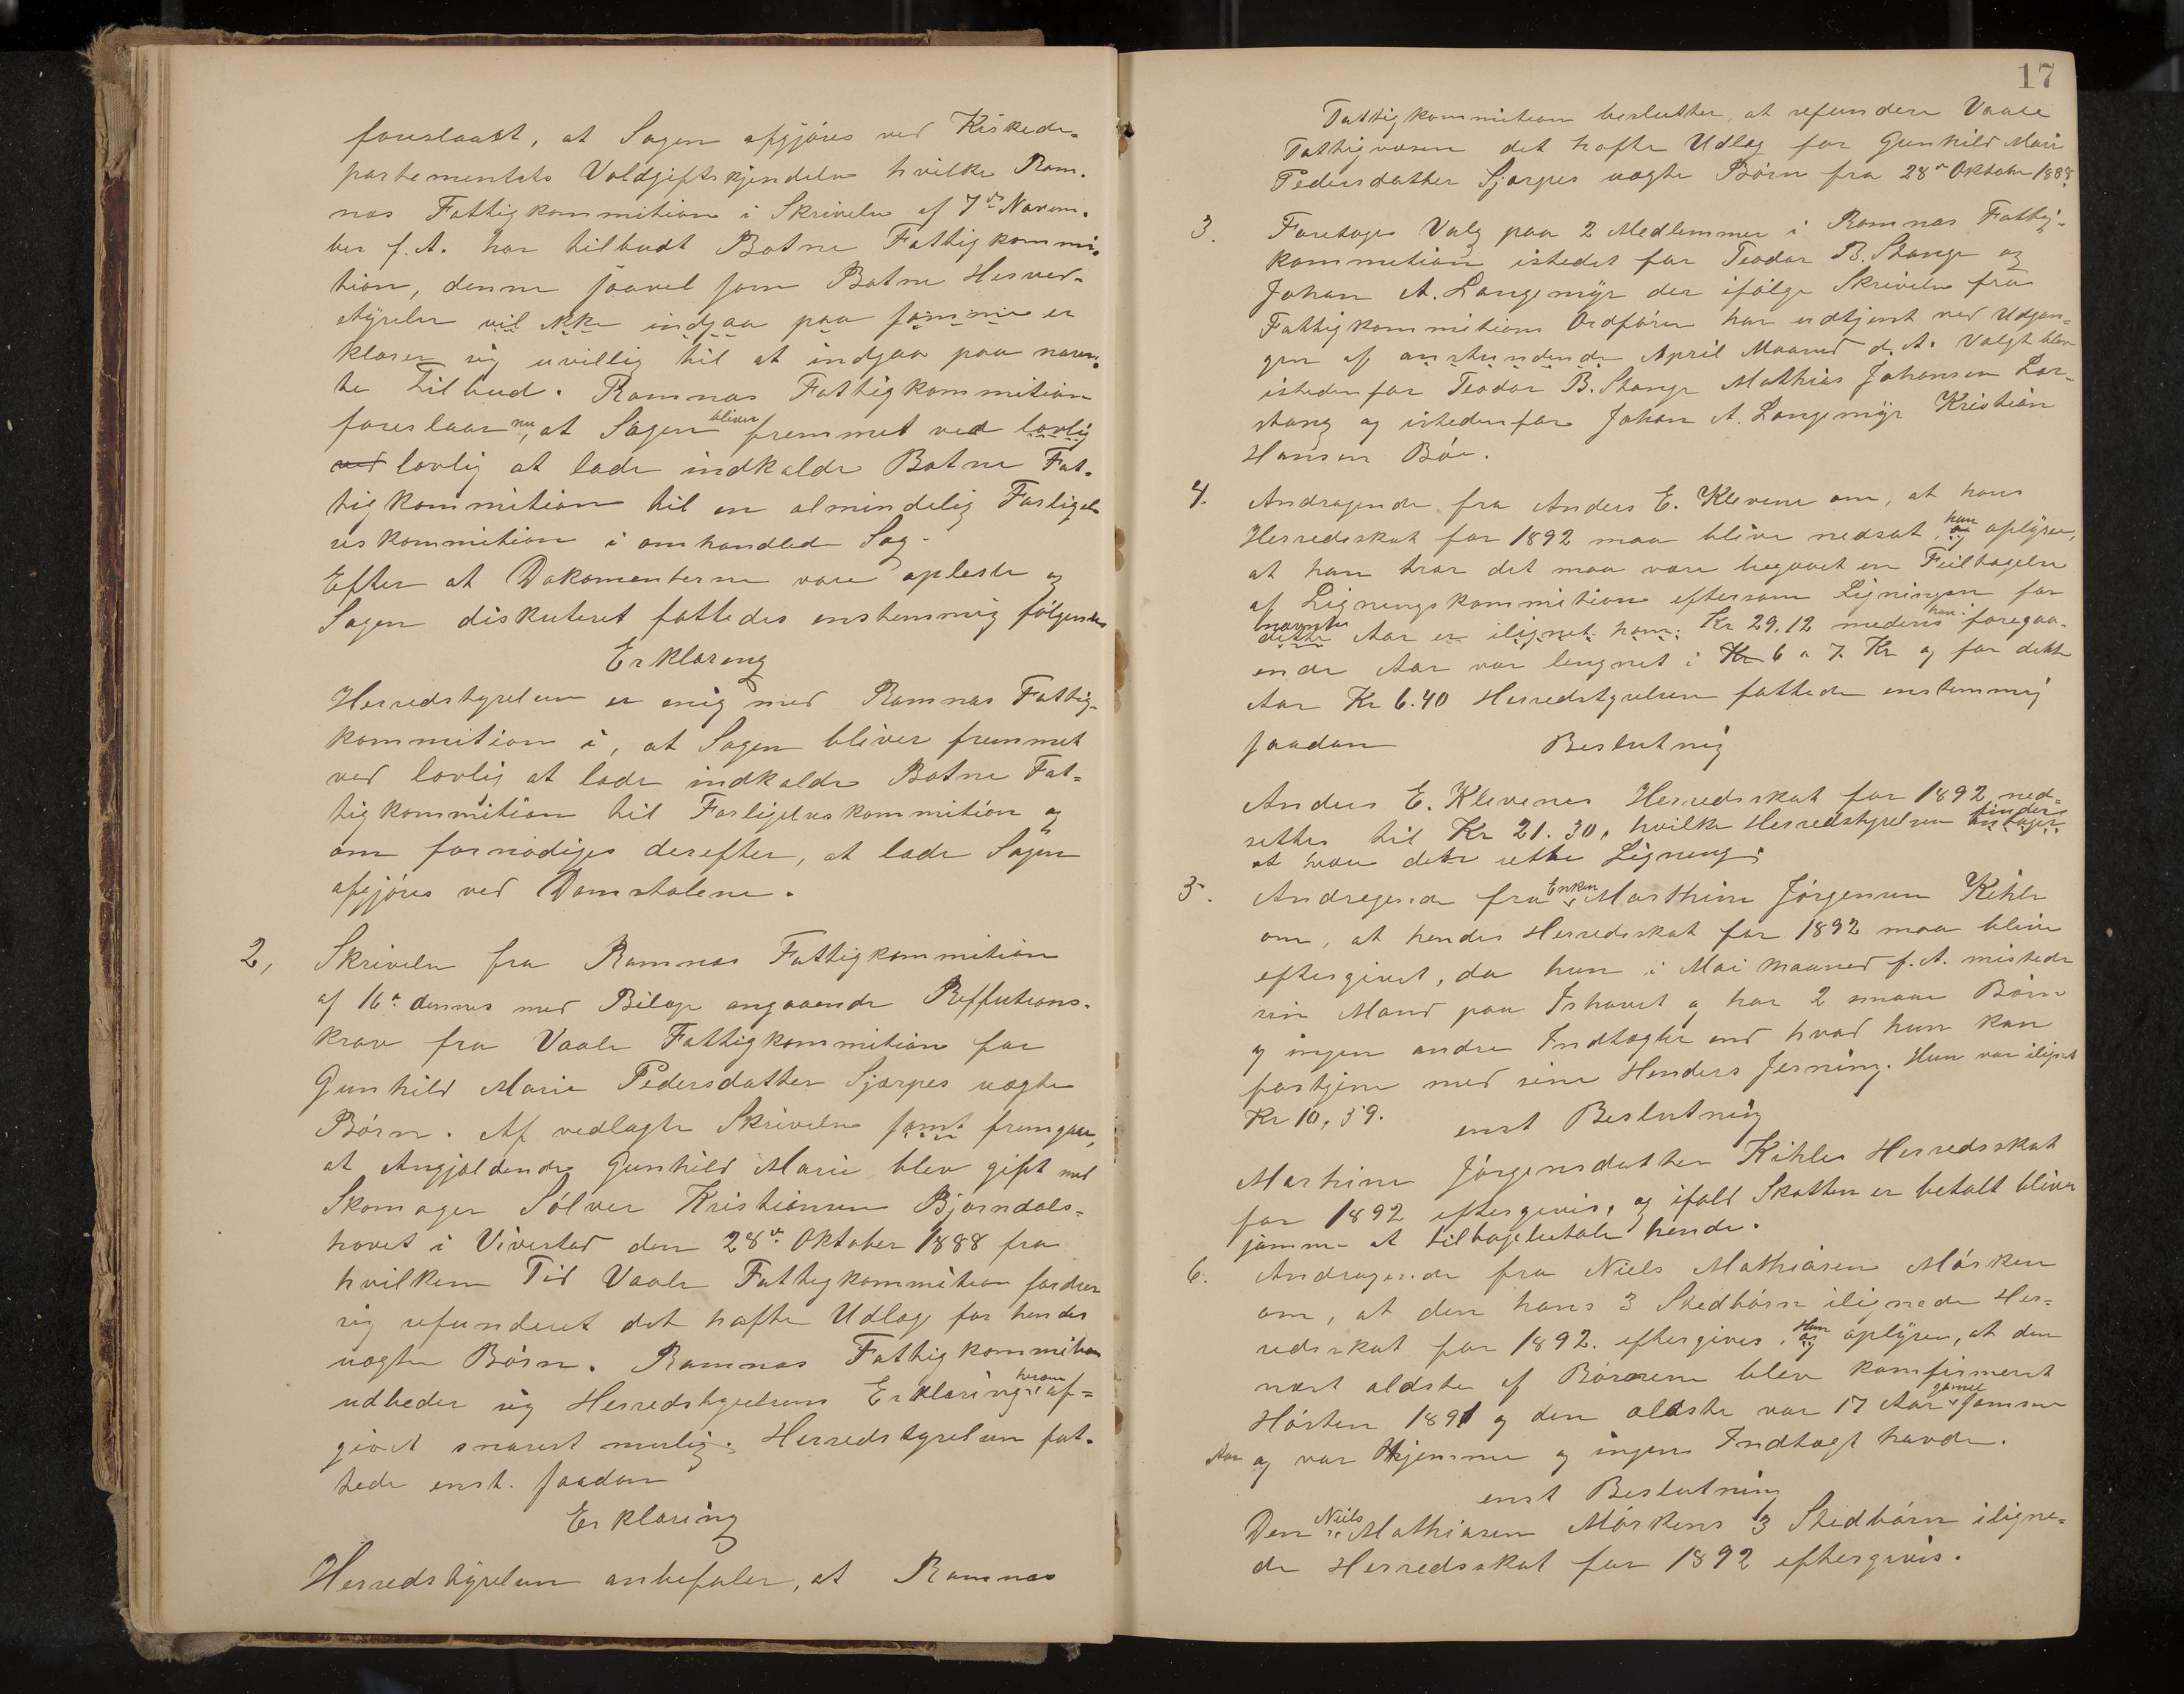 foreslaaet, at Sagen afgjøres ved Kirkede-
partementets Voldgiftskjendelse hvilke Ram-
næs Fattigkommition i Skrivelse af 7de Novem-
ber f. A. har tilbudt Botne Fattigkommi-
tion, denne saavel som Botne Herred-
styrelse vil ikke indgaa paa samme er
klærer sig uvillig til at indgaa paa nævn-
te Tilbud. Ramnæs Fattigkommition
foreslaar nu, at Sagen bliver fremmet ved lovlig
ved lovlig at lade indkalde Botne Fat-
tigkommition til en almindelig Forligel-
seskommition i omhandlede Sag.
Efter at Dokomenterne vare opleste og
Sagen diskuteret fattedes enstemmig følgende
Erklæring
Herredstyrelsen er enig med Ramnæs Fattig-
kommition i, at Sagen bliver fremmet
ved lovlig at lade indkalde Botne Fat-
tigkommition til Forligelseskommition og
om fornødiges derefter, at lade Sagen
afgjøres ved Domstolene.
2, Skrivelse fra Ramnæs Fattigkommition
af 16de dennes med Bilage angaaende Reffutions-
krav fra Vaale Fattigkommition for
Gunhild Marie Pedersdatter Sjærpes uægte
Børn. Af vedlagte Skrivelse samt fremgaar,
at Angjældende Gunhild Marie blev gift med
Skomager Sølver Kristiansen Bjørndals-
hovet i Vivestad den 28de Oktober 1888 fra
hvilken Tid Vaale Fattigkommition fordrer
sig refunderet det hafte Udlæg for hendes
uægte Børn. Ramnæs Fattigkommition
udbeder sig Herredstyrelsens Erklæring herom af-
givet snarest mulig. Herredstyrelsen fat-
tede enst. saadan
Erklæring
Herredstyrelsen anbefaler, at Ramnæs
17
Fattigkommitionen beslutter, at refundere Vaale
Fattigvæsen det hafte Udlæg for Gunhild Marie
Pedersdatter Sjærpes uægte Børn fra 28de Oktober 1888.
3. Foretages Valg paa 2 Medlemmer i Ramnæs Fattig-
kommition istedet for Teodor B. Stange og
Johan A. Langemyr der ifølge Skrivelse fra
Fattigkommitions Ordfører har udtjent ved Udgan-
gen af anstundende April Maaned d. A. Valgt blev
istedenfor Teodor B. Stange Mathias Johansen Lør-
stang og istedenfor Johan A. Langemyr Kristian
Hansen Bøe.
4. Andragende fra Anders E. Klevene om, at hans
Herredsskat for 1892 maa blive nedsat, og han oplyser,
at han tror det maa være begaaet en Feiltagelse
af Ligningskommitionen eftersom Ligningen for
dette nævnte Aar er ilignet ham Kr 29,12 medens han foregaa-
ende Aar var lignet i Kr 6 a 7 Kr og for dette
Aar Kr 6.40 Herredstyrelsen fattede enstemmig
saadan Beslutning
Anders E. Klevenes Herredsskat for 1892 ned-
settes til Kr 21.30, hvilke Herredstyrelsen antager finder
at være dette rette Ligning
5. Andragende fra Enken Marthine Jørgensen Kihle
om, at hendes Herredsskat for 1892 maa blive
eftergivet, da hun i Mai Maaned f. A. mistede
sin Mand paa Ishavet og har 2 smaae Børn
og ingen andre Indtægter end hvad hun kan
fortjene med sine Henders Gerning. Hun var ilignet
Kr 10,59. enst Beslutning
Marthine Jørgensdatter Kihles Herredsskat
for 1892 eftergives, og ifald Skatten er betalt bliver
samme at tilbagebetale hende.
6. Andragende fra Niels Mathiasen Mørken
om, at den hans 3 Stedbørn ilignede Her-
redsskat for 1892. eftergives, og Han oplyser, at den
næst ældste af Børnene blev komfirmeret
Høsten 1891 og den ældste var 17 Aar gamel samme
Aar og var Hjemme og ingen Indtægt havde.
enst Beslutning
Den Niels Mathiasen Mørkens 3 Stedbørn iligne-
de Herredsskat for 1892 eftergives.